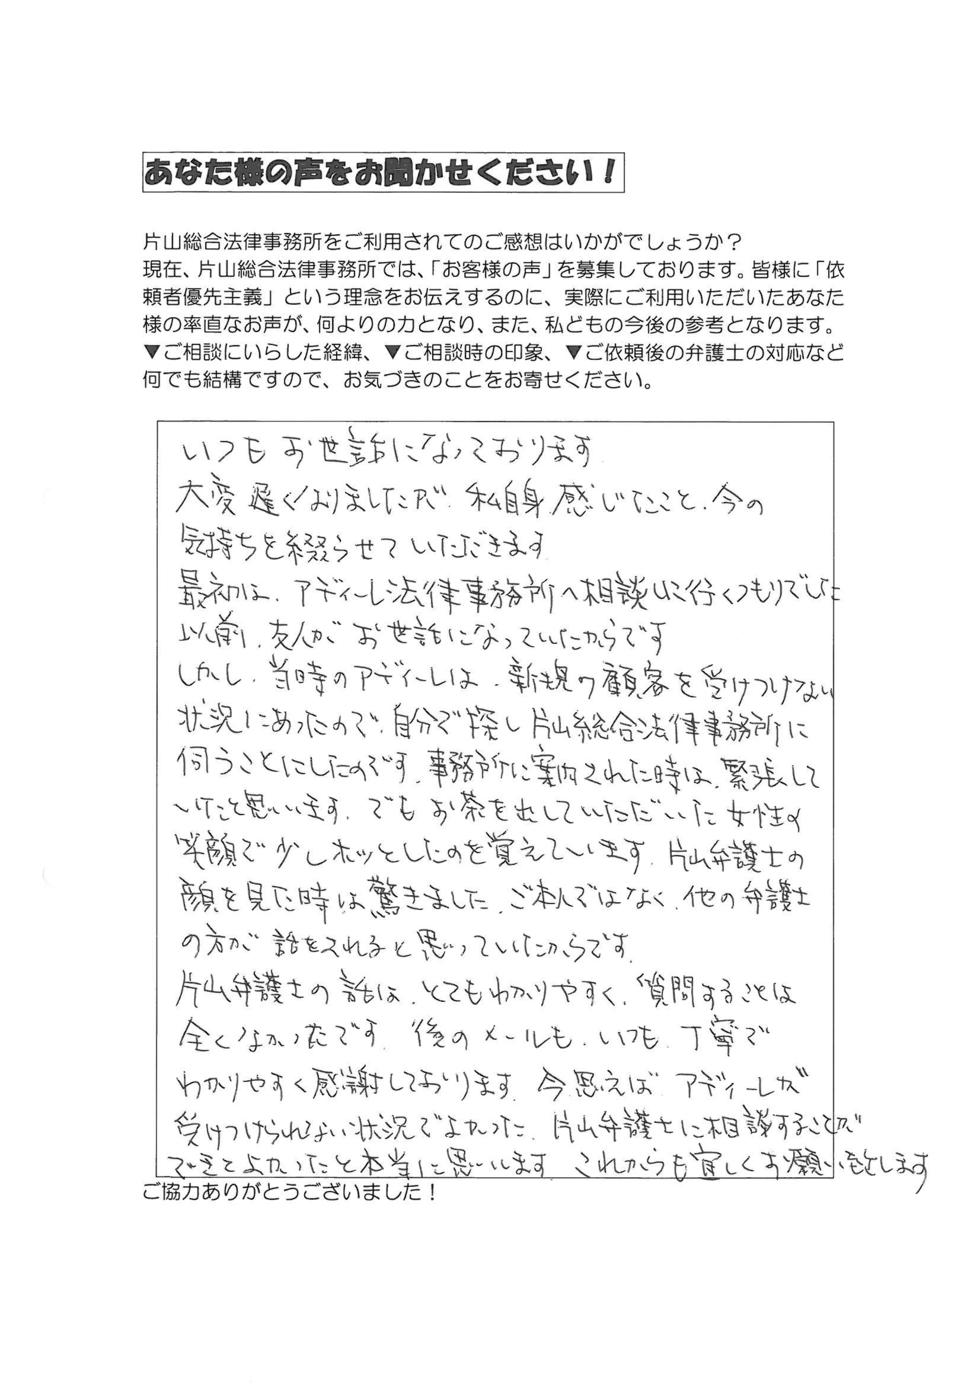 あなた様の声をお聞かせください！
片山総合法律事務所をご利用されてのご感想はいかがでしょうか？
現在、片山総合法律事務所では、「お客様の声」を募集しております。皆様に「依
頼者優先主義」という理念をお伝えするのに、実際にご利用いただいたあなた
様の率直なお声が、何よりの力となり、また、私どもの今後の参考となります。
▼ご相談にいらした経緯、▼ご相談時の印象、▼ご依頼後の弁護士の対応など
何でも結構ですので、お気づきのことをお寄せください。
いつもお世話になっております
大変遅くなりましたが、私自身、感じたこと、今の
気持ちを綴らせていただきます
最初は、アディーレ法律事務所へ相談しに行くつもりでした
以前、友人がお世話になっていたからです
しかし、当時のアディーレは、新規の顧客を受けつけない
状況にあったので、自分で探し片山総合法律事務所に
伺うことにしたのです。事務所に案内された時は、緊張して
いたと思います。でもお茶を出していただいた女性の
笑顔で少しホッとしたのを覚えています。片山弁護士の
顔を見た時は驚きました。ご本人ではなく、他の弁護士
の方が話をされると思っていたからです。
片山弁護士の話は、とてもわかりやすく、質問することは
全くなかったです。後のメールも、いつも、丁寧で
わかりやすく感謝しております。今思えば、アディーレが
受けつけられない状況でよかった。片山弁護士に相談することが
できてよかったと本当に思います。これからも宜しくお願い致します
ご協力ありがとうございました！